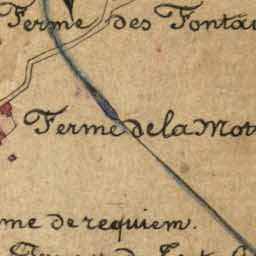 Ferme des Fontai
Ferme de la Mot
me de requiem.